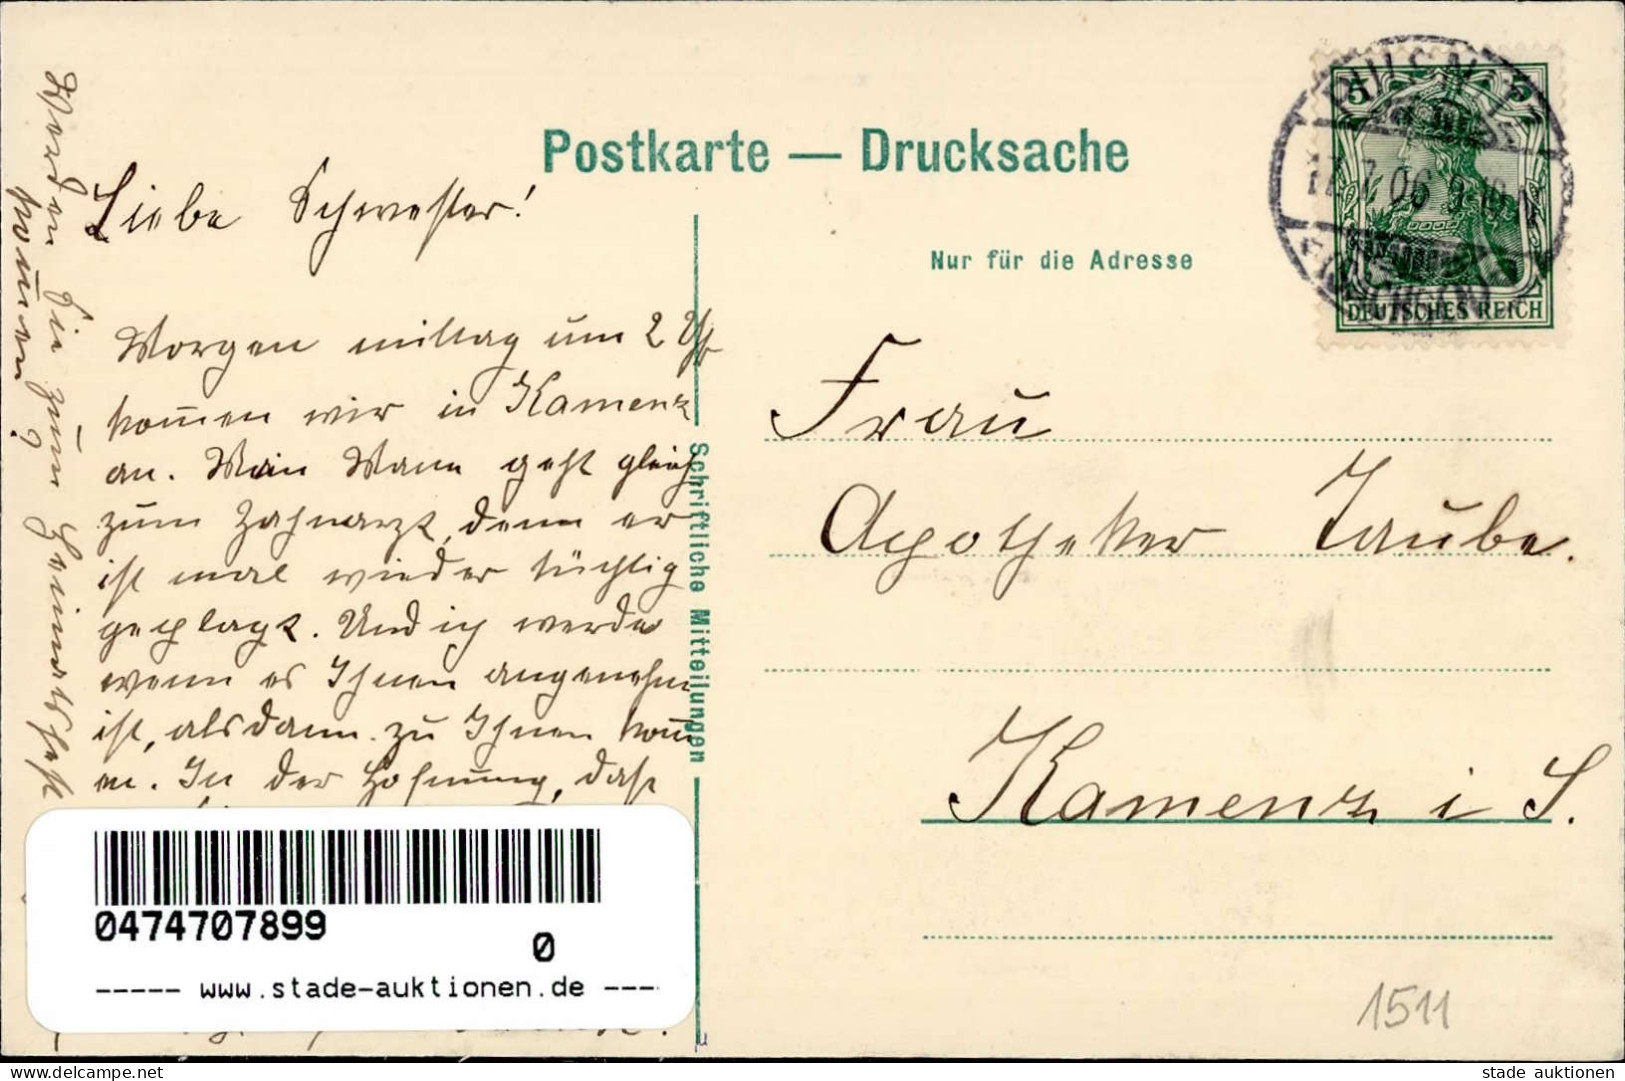 Postkarte — Drucksache
Nur für die Adresse
5 5
PULSNITZ
7. 06 9-10 V.
(SACHSEN)
DEUTSCHES REICH
Liebe Schwester!
Morgen mittag um 2 Uhr
kom̄en wir in Kamenz
an. Mein Mann geht gleich
zum Zahnarzt, denn er
ist mal wieder tüchtig
geplagt. Und ich werde
wenn es Ihnen angenehm
ist, alsdann zu Ihnen kom̄
en. In der Hofnung, daß
Werden Sie zum Heimatsfest
kom̄en?
Schriftliche Mitteilungen
Frau
Apotheker Taube.
Kamenz i S.
1511
0474707899
0
----- www.stade-auktionen.de ----
the-best-of-used.com
stade auktionen